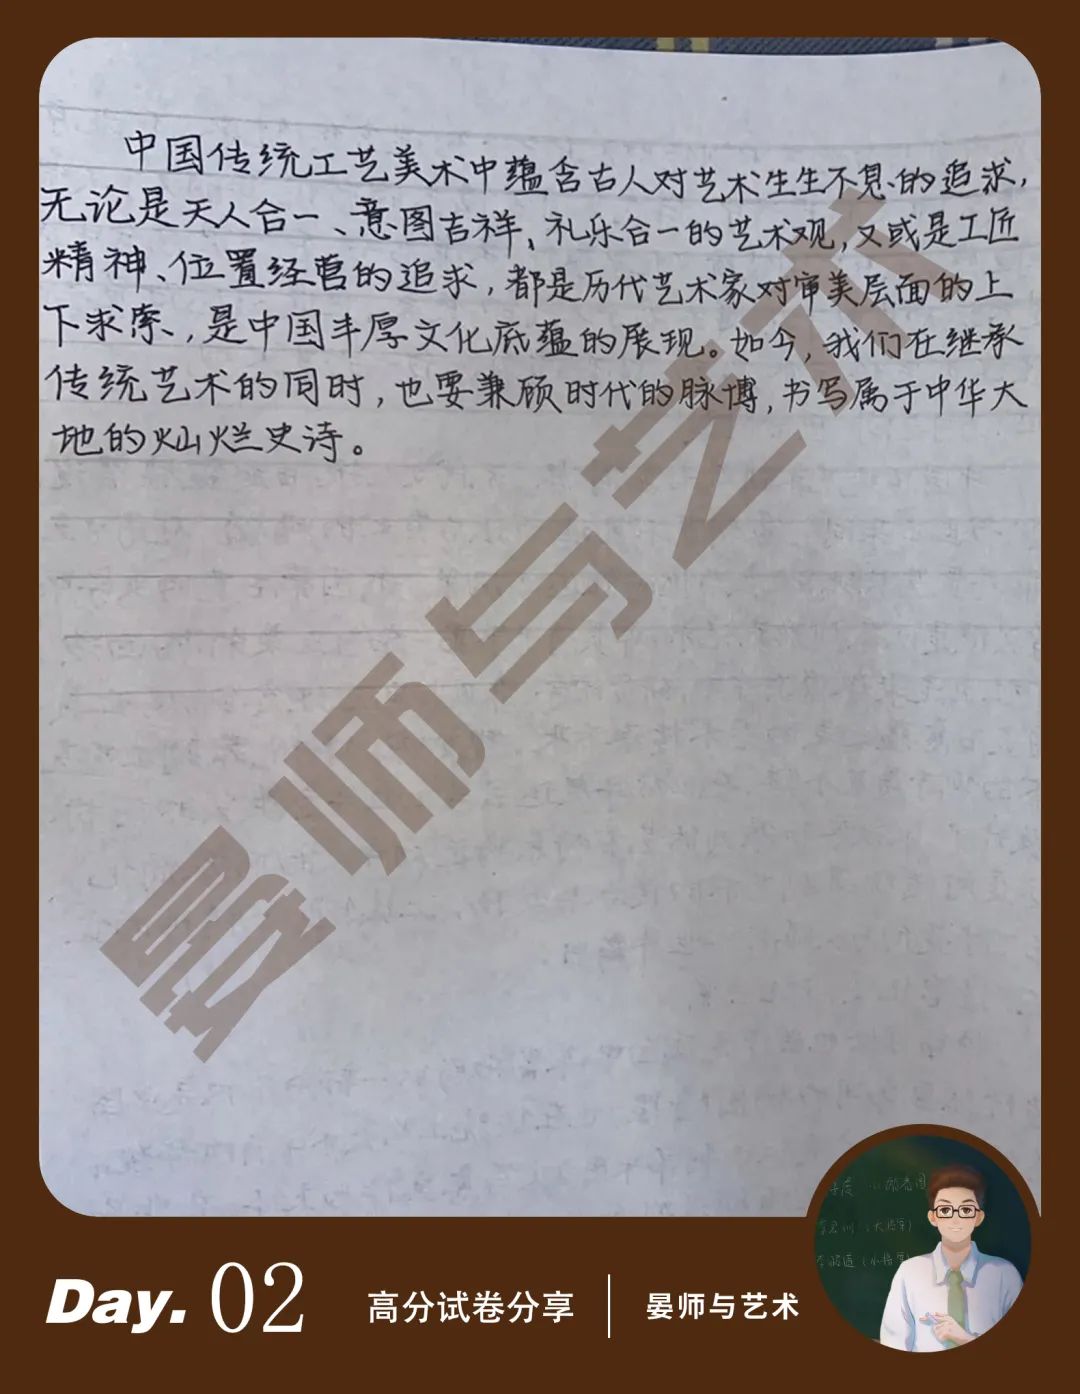 中国传统工艺美术中蕴含古人对艺术生生不息的追求,
无论是天人合一、意图吉祥、礼乐合一的艺术观,又或是工匠
精神、位置经营的追求,都是历代艺术家对审美层面的上
下求索,是中国丰厚文化底蕴的展现。如今,我们在继承
传统艺术的同时,也要兼顾时代的脉博,书写属于中华大
地的灿烂史诗。
晏师与艺术
Day. 02
高分试卷分享
晏师与艺术